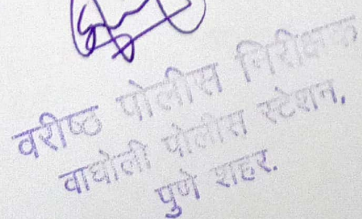 वरीष्ठ पोलीस निरीक्षक
वाघोली पोलीस स्टेशन,
पुणे शहर.